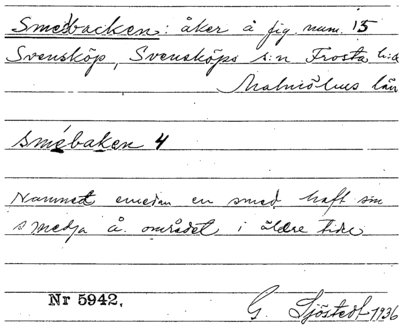 Smedbacken: åker å fig. num. 15
Svensköp, Svensköps s:n Frosta h:d
Malmöhus län
smébaken 4
Namnet emedan en smed haft sin
smedja å området i äldre tider
Nr 5942.
G. Sjöstedt 1936